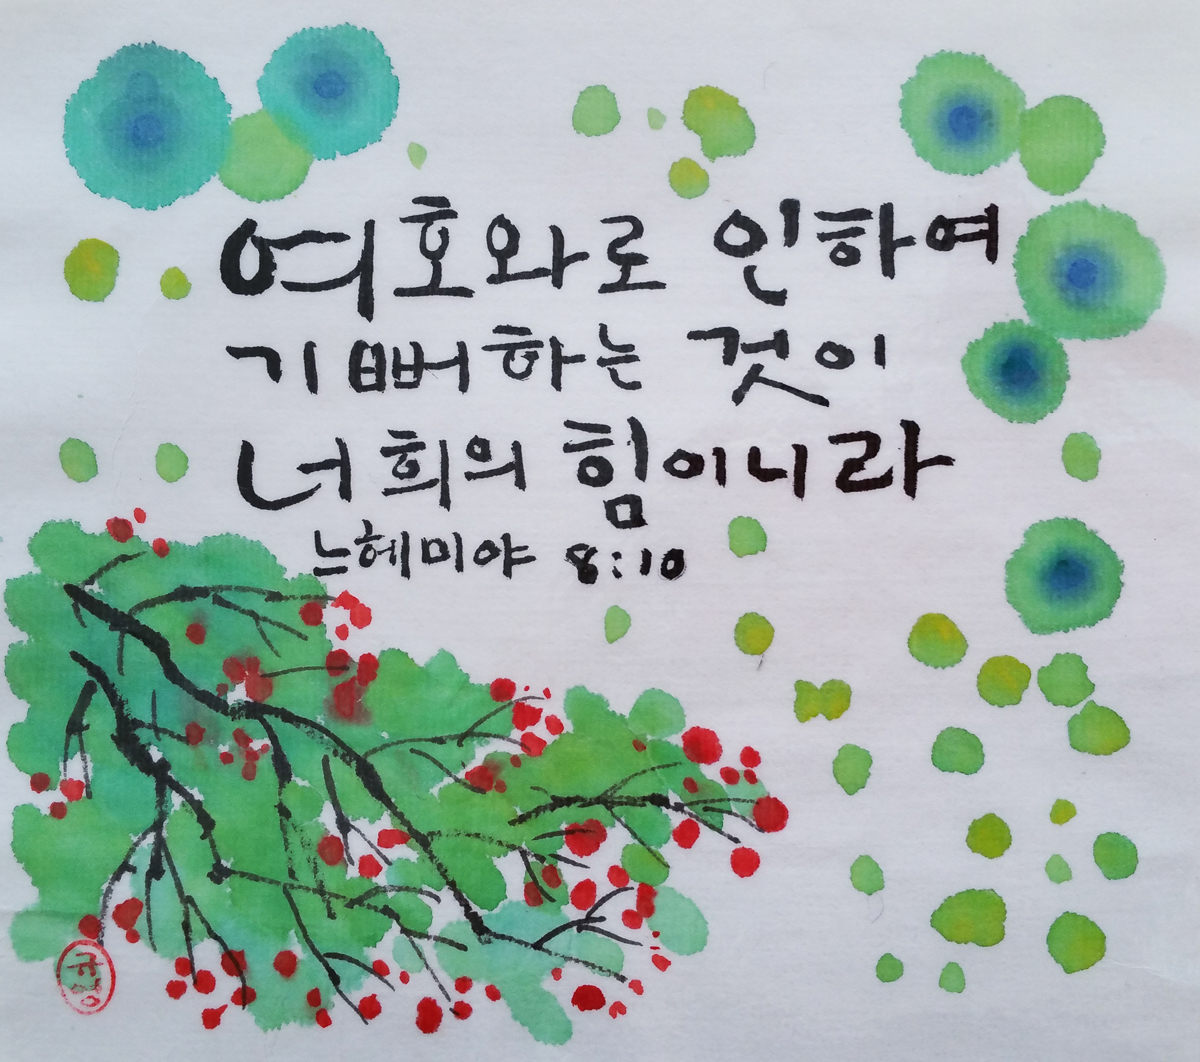 여호와로 인하여
기뻐하는 것이
너희의 힘이니라
느헤미야 8:10